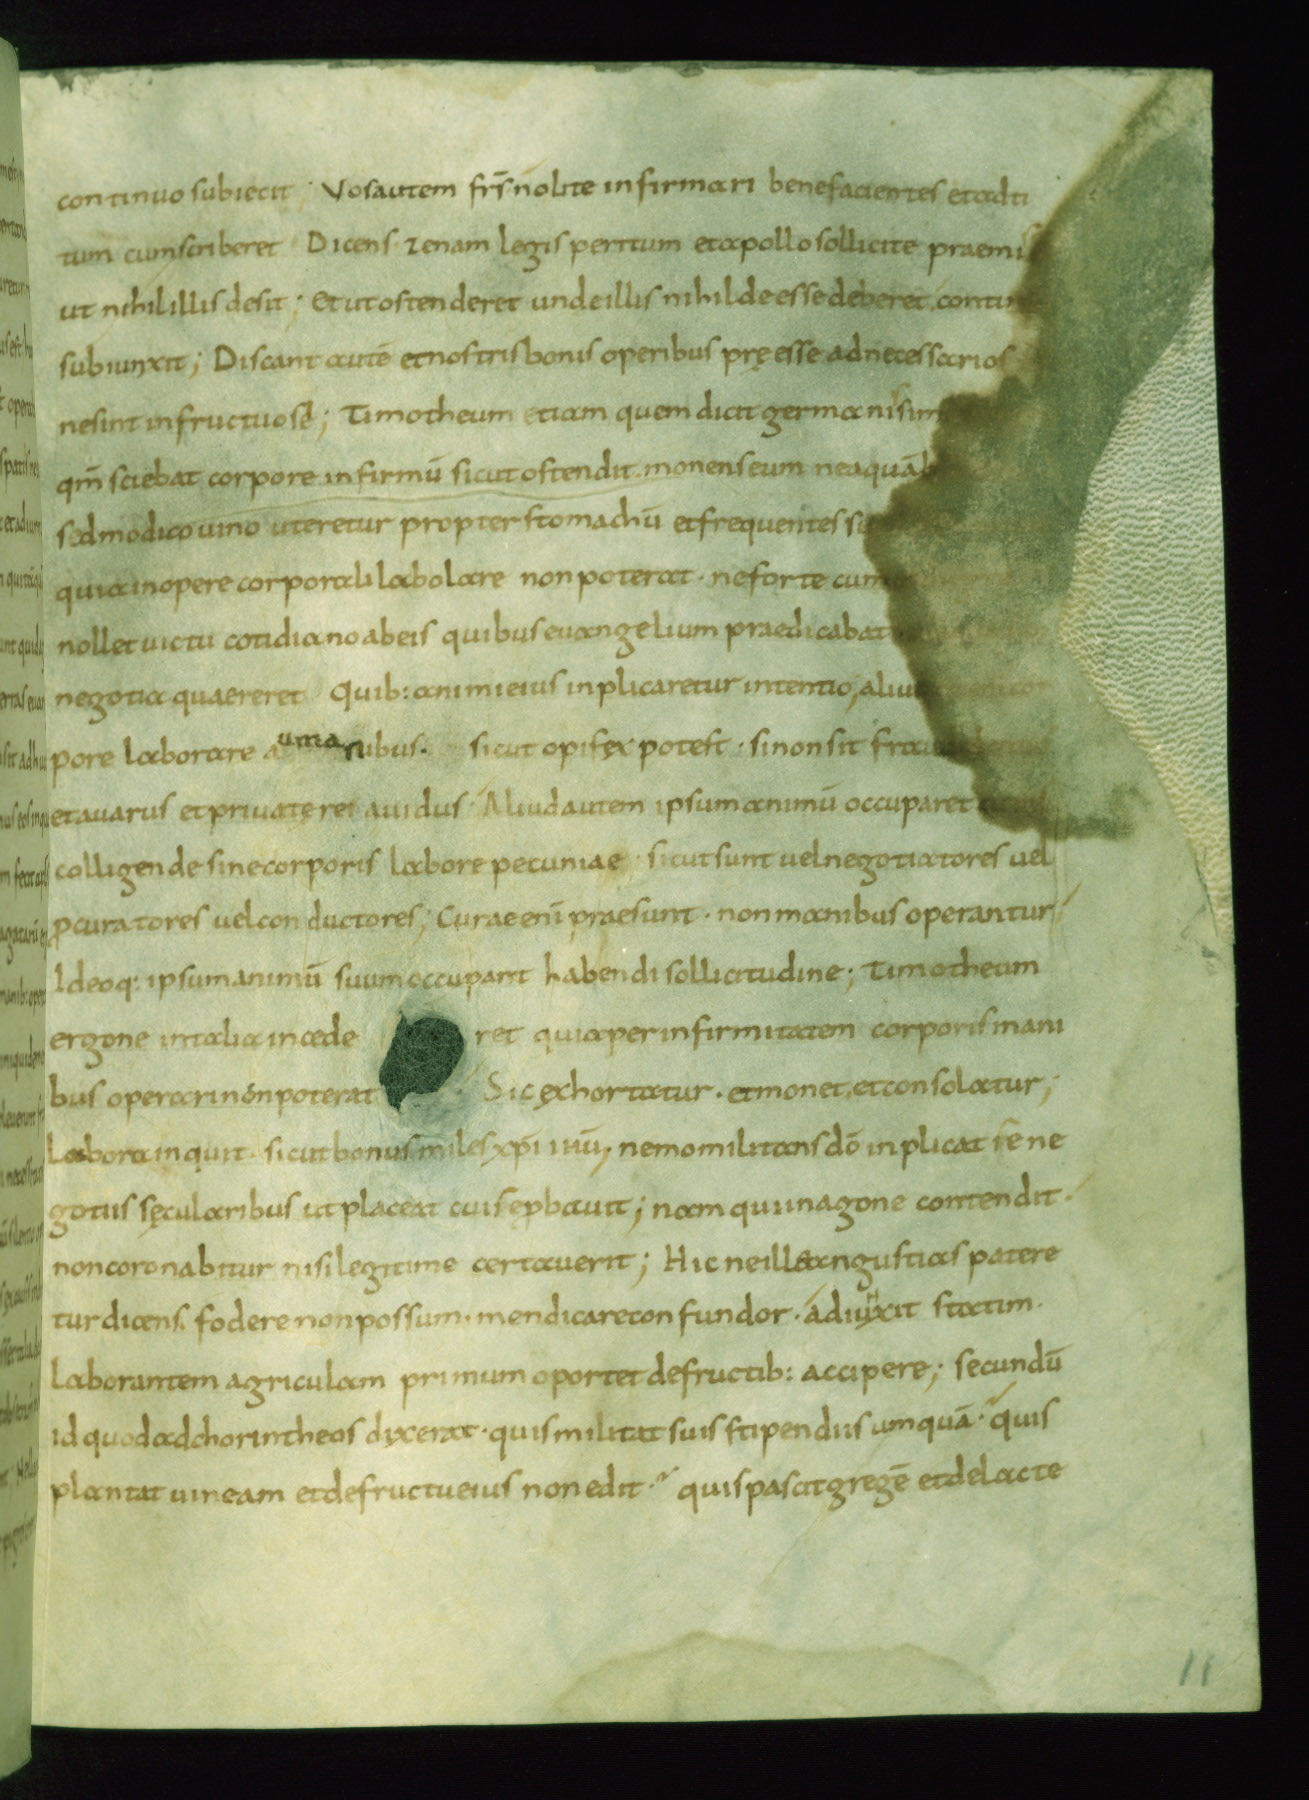 continuo subiecit ; Vos autem frs̄ nolite infirmari benefacientes et adti
tum cum scriberet Dicens · zenam legis peritum et apollo sollicite praemis
ut nihil illis desit ; Et ut ostenderet unde illis nihil deesse deberet . contin
subiunxit ; Discant autē et nostris bonis operibus pręesse ad necessarios
ne sint infructuose ; Timotheum etiam quem dicit germanisim
qm̄ sciebat corpore infirmū sicut ostendit . monens eum neaquā b
sed modico uino uteretur propter stomachū et frequentes s
quia in opere corporali labolare non poterat · ne forte cum
nollet uictu cotidiano ab eis quibus euangelium praedicabat
negotia quaereret Quib: animi eius inplicaretur intentio , aliu
pore laborare a uma nibus . sicut opifex potest · si non sit frau
et auarus et priuatę rei auidus · Aliud autem ipsum animū occuparet
colligende sine corporis labore pecuniae ; sicut sunt uel negotiatores uel
ꝓcuratores uel conductores ; Curae enī praesunt · non manibus operantur
Ideoq: ipsum animū suum occupant habendi sollicitudine ; Timotheum
ergo ne in talia incede ret quia per infirmitatem corporis mani
bus operari non poterat . Sic exhortatur · et monet , et consolatur ;
Labora inquit · sicut bonus miles xp̄i ihū , nemo militans dō inplicat se ne
gotiis sęcularibus ut placeat cui se ꝓbauit ; nam qui in agone contendit ·
non coronabitur nisi legitime certauerit ; Hic ne ille angustias patere
tur dicens . fodere non possum · mendicare confundor · adiunxit statim ·
Laborantem agriculam primum oportet de fructib: accipere ; secundū
id quod ad chorintheos dixerat · quis militat suis stipendiis umquā · quis
plantat uineam et de fructu eius non edit · quis pascit gregē et de lacte
11